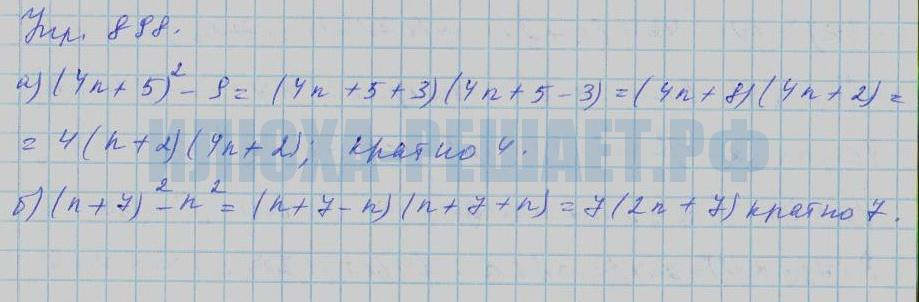 Упр. 898.
а) (4n + 5)² - 9 = (4n + 5 + 3)(4n + 5 - 3) = (4n + 8)(4n + 2) =
= 4(n + 2)(4n + 2); кратно 4.
ИЛЮХА-РЕШАЕТ.РФ
б) (n + 7)² - n² = (n + 7 - n)(n + 7 + n) = 7(2n + 7) кратно 7.